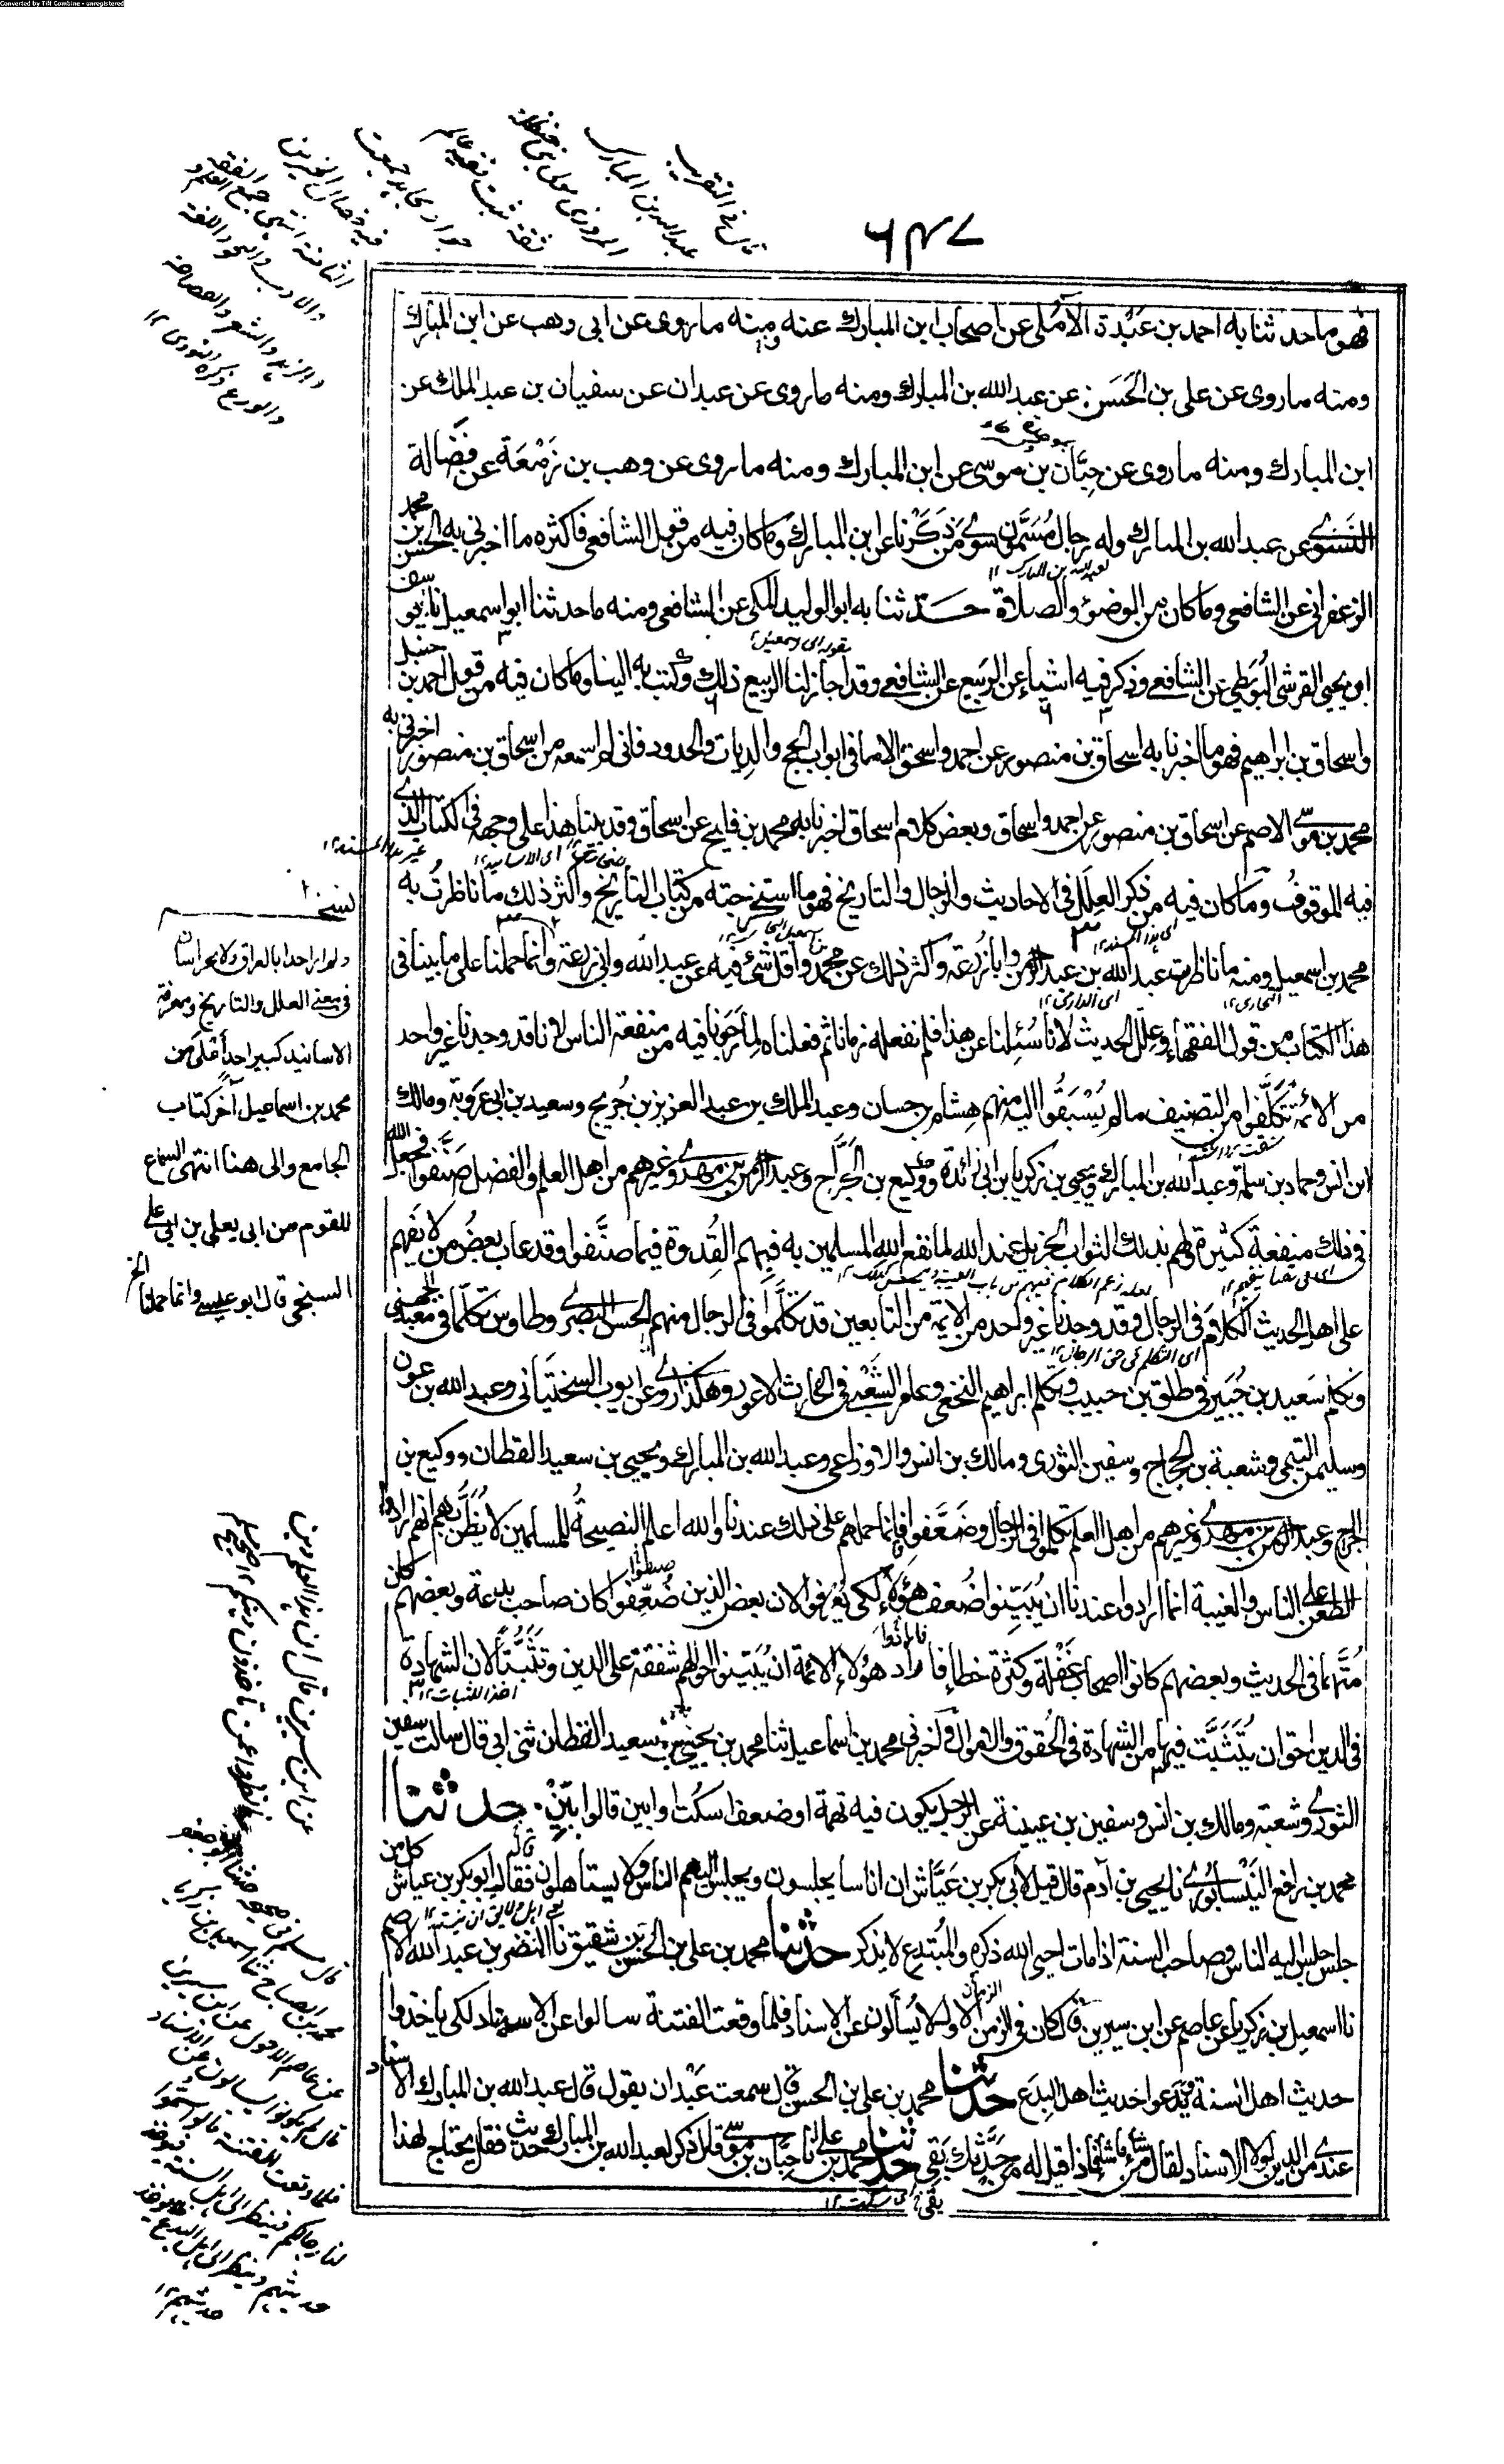 Converted by Tiff Combine - unregistered
فهو ما حدثنا به احمد بن عَبْدة الآمُلى عن اصحاب ابن المبارك عنه ومنه ما روى عن ابى وهب عن ابن المبارك
ومنه ما روى عن على بن الحَسَن عن عبد الله بن المبارك ومنه ما روى عن عبدان عن سفيان بن عبد الملك عن
ابن المبارك ومنه ما روى عن حِبَّان بن موسى عن ابن المبارك ومنه ما روى عن وهب بن زَمْعَة عن فَضَالة
النَسَوى عن عبد الله بن المبارك وله رجال مُسَمَّون سوى من ذكرنا عن ابن المبارك وما كان فيه من قول الشافعى فاكثره ما اخبرنى به الحسن بن محمد
الزعفرانى عن الشافعى وما كان من الوضوء والصلاة حدثنا به ابو الوليد المكى عن الشافعى ومنه ما حدثنا ابو اسمعيل نا يوسف
ابن يحيى القرشى البُوَيطى عن الشافعى وذكر فيه اشياء عن الربيع عن الشافعى وقد اجاز لنا الربيع ذلك وكتب به الينا وما كان فيه من قول احمد بن حنبل
واسحاق بن ابراهيم فهو ما اخبرنا به اسحاق بن منصور عن احمد واسحق الا ما فى ابواب الحج والديات والحدود فانى لم اسمعه من اسحاق بن منصور اخبرنى به
محمد بن موسى الاصم عن اسحاق بن منصور عن احمد واسحاق وبعض كلام اسحاق اخبرنا به محمد بن فليح عن اسحاق وقد بينا هذا على وجهه فى الكتاب الذى
فيه الموقوفُ وما كان فيه من ذكر العِلَل فى الاحاديث والرجال والتاريخ فهو ما استخرجته من كتاب التاريخ واكثر ذلك ما ناظرتُ به
محمد بن اسمعيل ومنه ما ناظرت عبد الله بن عبد الرحمن وابا زرعة واكثر ذلك عن محمد واقل شئ فيه عن عبد الله وابى زرعة وانما حملنا على ما بينا فى
هذا الكتاب من قول الفقهاء وعلل الحديث لانا سُئِلنا عن هذا فلم نفعله زمانا ثم فعلناه لِما رجونا فيه من منفعة الناس لانا قد وجدنا غير واحد
من الائمة تكلَّفوا من التصنيف ما لم يُسْبَقُوا اليه منهم هشام بن حسان وعبد الملك بن عبد العزيز بن جُريج وسعيد بن ابى عَروبة ومالك
ابن انس وحماد بن سلمة وعبد الله بن المبارك ويحيى بن زكريا بن ابى زائدة ووكيع بن الجَرَّاح وعبد الرحمن بن مهدى وغيرهم من اهل العلم والفضل صَنّفوا فجعل الله
فى ذلك منفعة كثيرة فلهم بذلك الثواب الجزيل عند الله لما نفع الله المسلمين به فبهم القُدوة فيما صنَّفوا وقد عاب بعضُ من لا يَفهم
على اهل الحديث الكلام فى الرجال وقد وجدنا غير واحد من الائمة من التابعين قد تكلَّموا فى الرجال منهم الحسن البصرى وطاوس تكلّما فى معبد الجهنى
وتكلم سَعيد بن جُبَير فى طلق بن حبيب وتكلم ابراهيم النخعى وعامر الشَّعْبى فى الحارث الاعور وهكذا رُوى عن ايوب السختيانى وعبد الله بن عون
وسليمن التيمى وشعبة بن الحجاج وسفين الثورى ومالك بن انس والاوزاعى وعبد الله بن المبارك ويحيى بن سعيد القطان ووكيع بن
الجراح وعبد الرحمن بن مهدى وغيرهم من اهل العلم تكلموا فى الرجال وضعَّفوا فانما حملهم على ذلك عندنا والله اعلم النصيحةُ للمسلمين لا يُظَنّ بهم انهم ارادوا
الطعن على الناس والغيبة انما ارادوا عندنا ان يُبَيّنوا ضُعف هؤلاء لكى يُعرفوا لان بعض الذين ضُعّفوا كان صاحب بدعة وبعضهم كان
مُتَّهما فى الحديث وبعضهم كانوا اصحاب غَفْلة وكثرة خطإ فاراد هؤلاء الائمة ان يُبَيّنوا احوالهم شفقة على الدين وتَثَبُّتا لان الشهادة
فى الدين احق ان يُتَثَبَّت فيها من الشهادة فى الحُقوق والاموال واخبرنى محمد بن اسماعيل ثنا محمد بن يحيى بن سعيد القطان ثنى ابى قال سالت سفين
الثورى وشعبة ومالك بن انس وسفين بن عيينة عن الرجل يكون فيه تهمة او ضعف اسكُت او ابين قالوا بَيّن. حدثنا
محمد بن رافع النَيْسابُورى نا يحيى بن آدم قال قيل لابى بكر بن عَيَّاش ان اناسا يجلسون ويجلس اليهم الناس ولا يستأهلون فقال ابو بكر بن عياش كل من
جلس جلس اليه الناس وصاحب السنة اذا مات احيى الله ذكره والمُبتدع لا يذكر حدثنا محمد بن على بن الحسن بن شقيق نا النضر بن عبد الله الاصم
نا اسمعيل بن زكريا عن عاصم عن ابن سيرين قال كان فى الزمن الاول لا يُسألون عن الاسناد فلما وقعت الفتنة سالوا عن الاسناد لكى ياخذوا
حديث اهل السنة ويَدَعوا حديث اهل البِدَع حدثنا محمد بن على بن الحسن قال سمعت عَبْدان يقول قال عبد الله بن المبارك الاسناد
عندى من الدين لولا الاسناد لقال من شاء ما شاء فاذا قيل له من حَدَّثك بَقِى حدثنا محمد بن على نا حِبَّان بن موسى قال ذُكر لعبد الله بن المبارك حديث فقال يحتاج لهذا
نسخة
ولم ار احدا بالعراق ولا بخراسان
فى معنى العلل والتاريخ ومعرفة
الاسانيد كبير احد اعلم من
محمد بن اسماعيل آخر كتاب
الجامع والى هنا انتهى السماع
للقوم من ابى يعلى بن ابى على
السنجى قال ابو عيسى وانما حملنا الخ
قال فى التقريب
عبد الله بن المبارك
المروزى مولى بنى حنظلة
ثقة ثبت فقيه عالم
جواد مجاهد جمعت
فيه خصال الخير من
الثامنة انتهى جمع الفقه
والادب والنحو واللغة
والزهد والشعر والفصاحة
عن ابن سيرين قال ان هذا العلم دين
فانظروا عمن تأخذون دينكم